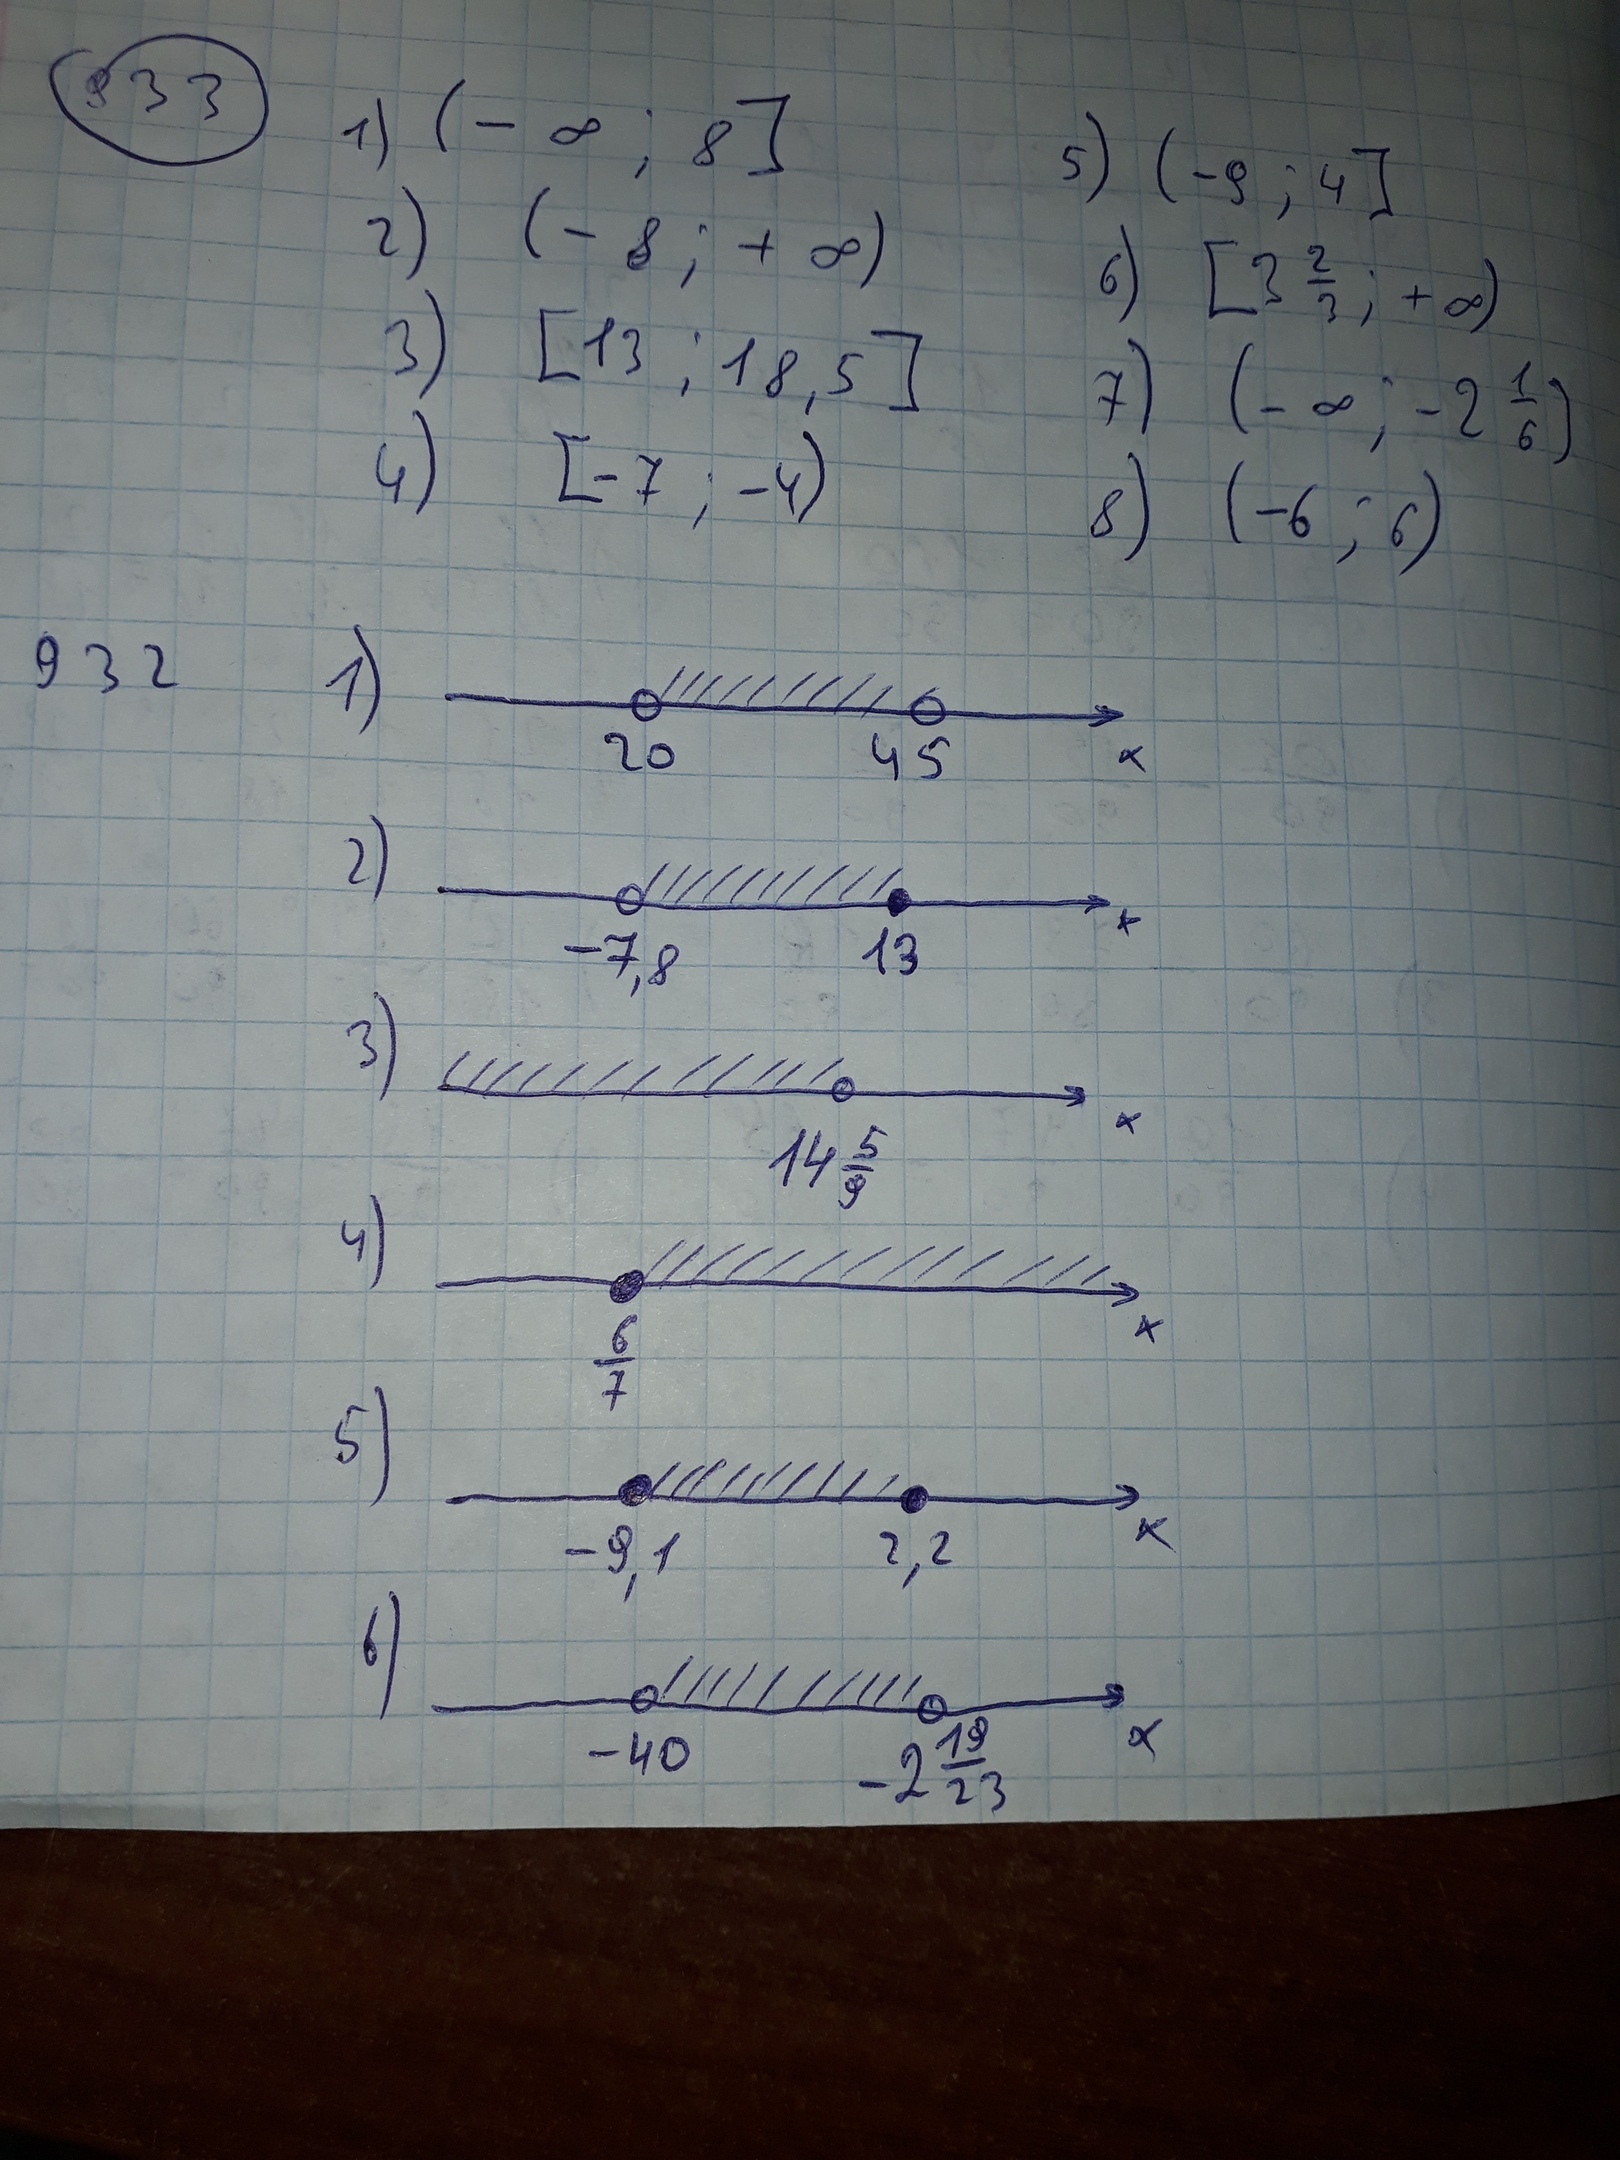 933
1) (- ∞ ; 8]
2) (- 8 ; + ∞)
3) [13 ; 18,5]
4) [-7 ; -4)
5) (-9 ; 4]
6) [3 2/3 ; + ∞)
7) (- ∞ ; -2 1/6)
8) (-6 ; 6)
932
1)
20 45 x
2)
-7,8 13 x
3)
14 5/9 x
4)
6/7 x
5)
-9,1 2,2 x
6)
-40 -2 19/23 x